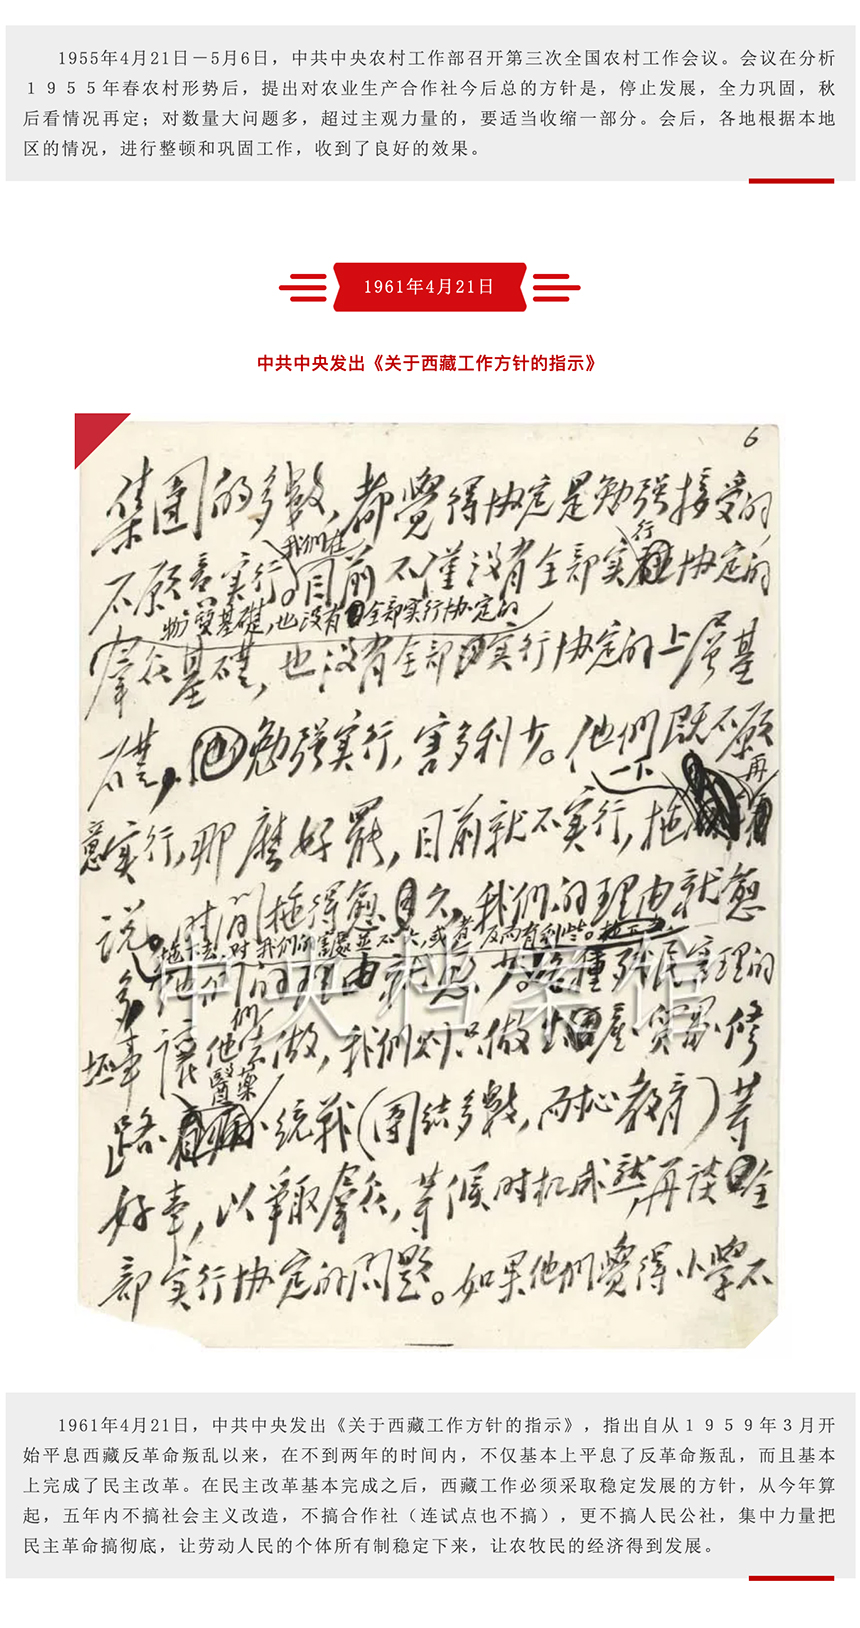 1955年4月21日－5月6日，中共中央农村工作部召开第三次全国农村工作会议。会议在分析
１９５５年春农村形势后，提出对农业生产合作社今后总的方针是，停止发展，全力巩固，秋
后看情况再定；对数量大问题多，超过主观力量的，要适当收缩一部分。会后，各地根据本地
区的情况，进行整顿和巩固工作，收到了良好的效果。
1961年4月21日
中共中央发出《关于西藏工作方针的指示》
6
集团的多数，都覺得协定是勉强接受的
我们在
行
不願意实行。目前不僅没有全部实协定的
物质基礎，也没有全部实行协定的
羣众基礎，也没有全部实行协定的上层基
礎，勉强实行，害多利少。他們既不願
一下
再
意实行，那麽好罷，目前就不实行，拖
说。时间拖得愈久，我们的理由就愈
对我们的害處並不大，或者反而有利些。
多，他们的理由就愈少。各種殘民害理的
坯事讓他们去做，我們则只做生產、貿易、修
醫藥
路、统战（團结多數，耐心教育）等
好事，以爭取羣众，等候时机成熟，再谈全
部实行协定的问题。如果他們覺得小學不
中央档案馆
1961年4月21日，中共中央发出《关于西藏工作方针的指示》，指出自从１９５９年３月开
始平息西藏反革命叛乱以来，在不到两年的时间内，不仅基本上平息了反革命叛乱，而且基本
上完成了民主改革。在民主改革基本完成之后，西藏工作必须采取稳定发展的方针，从今年算
起，五年内不搞社会主义改造，不搞合作社（连试点也不搞），更不搞人民公社，集中力量把
民主革命搞彻底，让劳动人民的个体所有制稳定下来，让农牧民的经济得到发展。